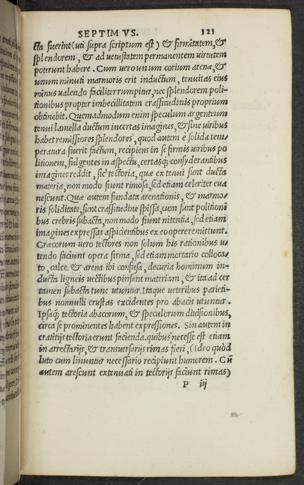 SEPTIM VS. 121
cta fuerint (uti supra scriptum est) & firmitatem, &
splendorem, & ad uetustatem permanentem uirtutem
poterunt habere. Cum uero unum corium arenæ, &
unum minuti marmoris erit inductum, tenuitas eius
minus ualendo faciliter rumpitur, nec splendorem poli-
tionibus propter imbecillitatem crassitudinis proprium
obtinebit. Quemadmodum enim speculum argenteum
tenui lamella ductum incertas imagines, & sine uiribus
habet remissiores splendores, quod autem è solida tem-
peratura fuerit factum, recipiens in se firmis uiribus po
litionem, fulgentes in aspectu, certasq; considerantibus
imagines reddit, sic tectoria, quæ ex tenui sunt ducta
materia, non modo fiunt rimosa, sed etiam celeriter eua
nescunt. Quæ autem fundata arenationis, & marmo-
ris soliditate, sunt crassitudine spissa, cum sunt politioni
bus crebris subacta, non modo fiunt nitentia, sed etiam
imagines expressas aspicientibus ex eo opere remittunt.
Græcorum uero tectores non solum his rationibus u
tendo faciunt opera firma, sed etiam mortario colloca
to, calce & arena ibi confusa, decuria hominum in-
ducta ligneis uectibus pinsant materiam, & ita ad cer
tamen subacta tunc utuntur. Itaque ueteribus parieti-
bus nonnulli crustas excidentes pro abacis utuntur.
Ipsaq; tectoria abacorum, & speculorum diuisionibus,
circa se prominentes habent expressiones. Sin autem in
cratitijs tectoria erunt facienda, quibus necesse est etiam
in arrectarijs, & transuersarijs rimas fieri, (ideo quòd
luto cum linuntur necessario recipiunt humorem. Cū
autem arescunt extenuati in tectorijs faciunt rimas)
P iij